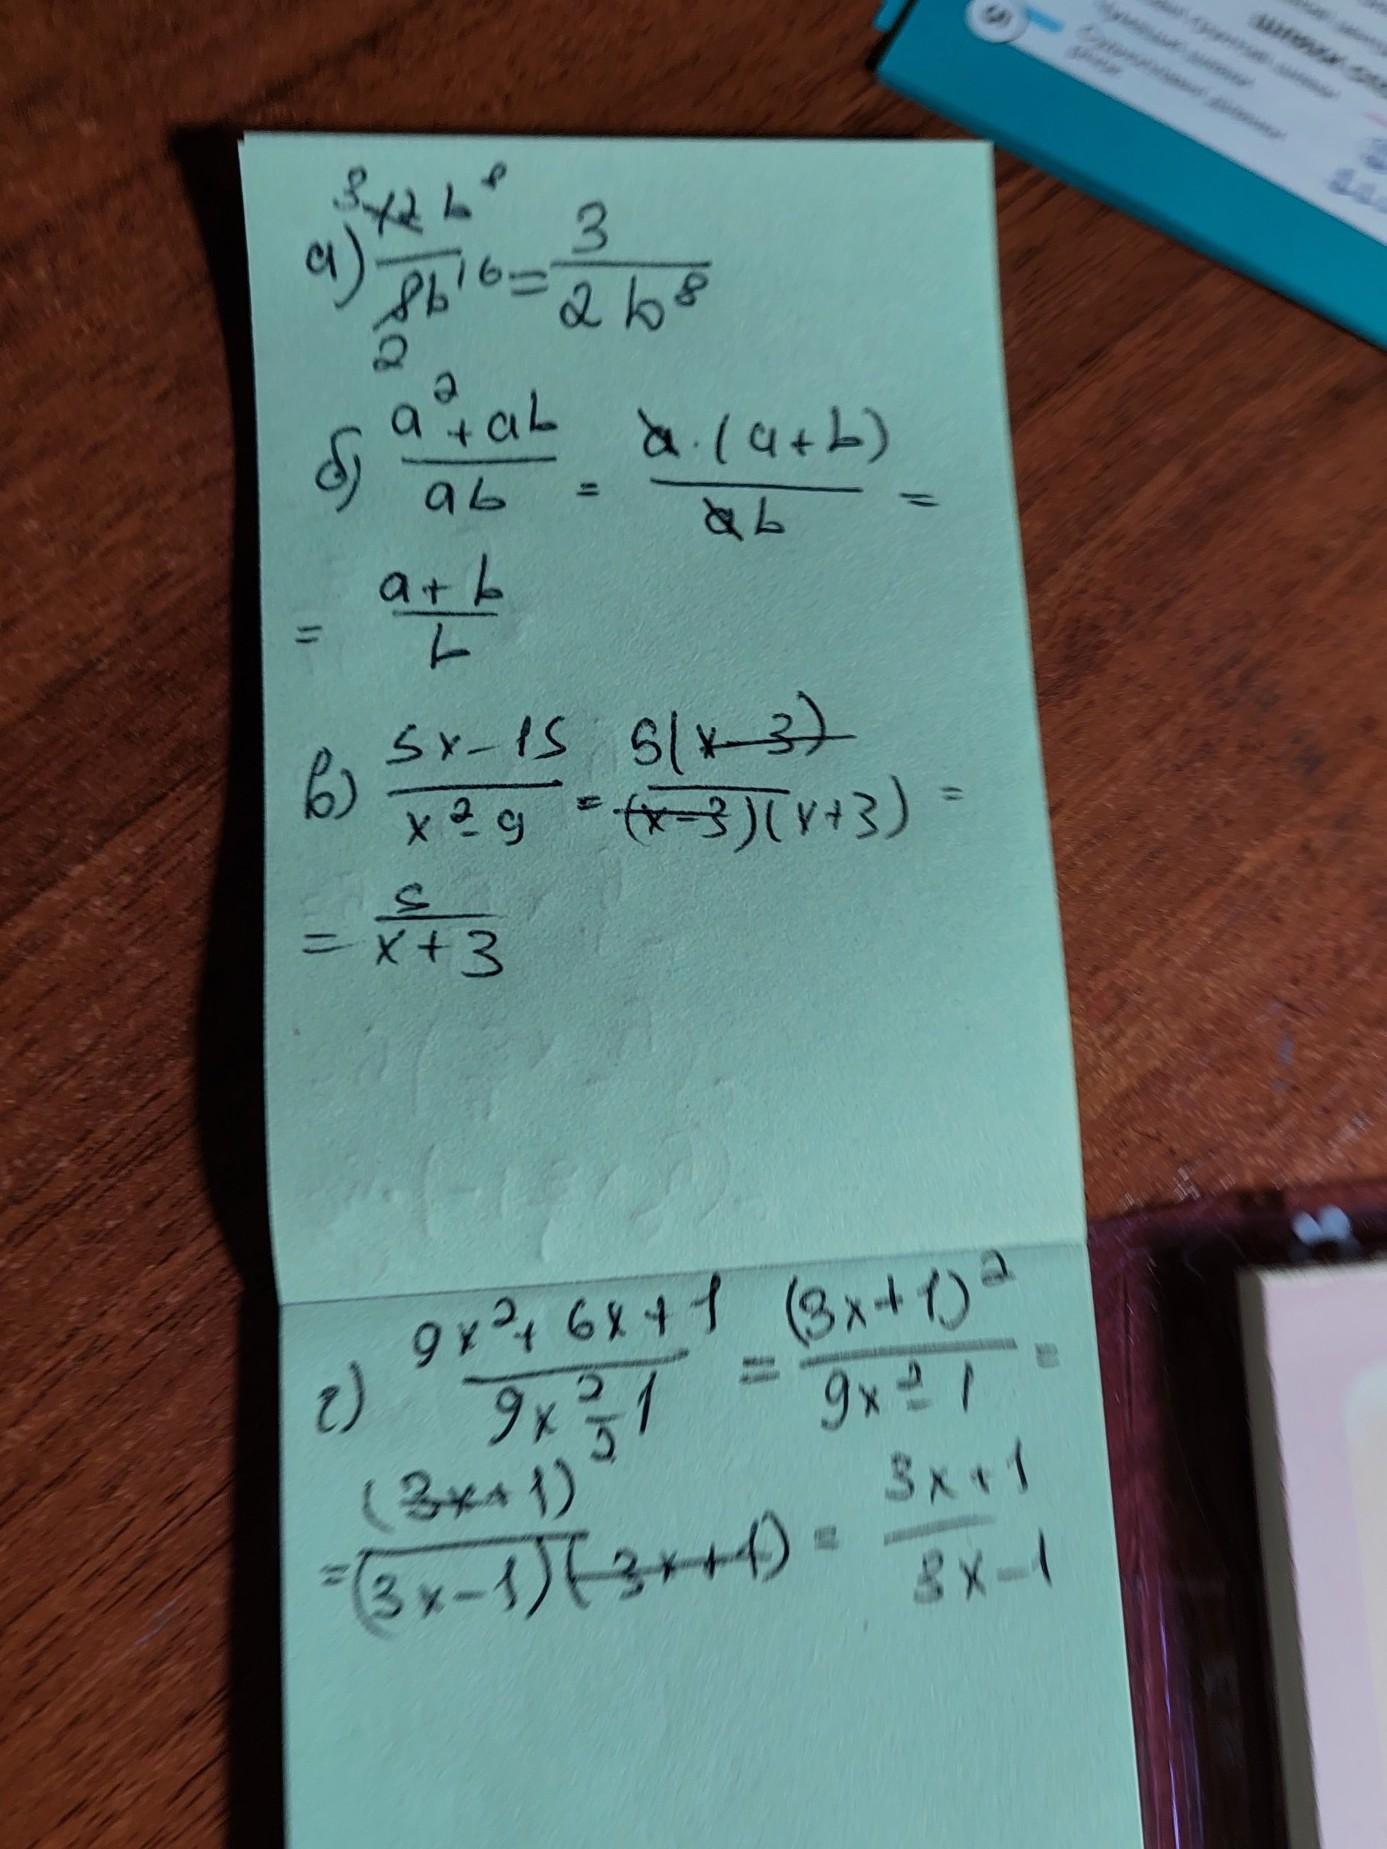 а) 12b^8 / 8b^16 = 3 / 2b^8
3
2
б) a^2+ab / ab = a·(a+b) / ab =
= a+b / b
в) 5x-15 / x^2-9 = 5(x-3) / (x-3)(x+3) =
= 5 / x+3
г) 9x^2+6x+1 / 9x^2-1 = (3x+1)^2 / 9x^2-1 =
= (3x+1)^2 / (3x-1)(3x+1) = 3x+1 / 3x-1